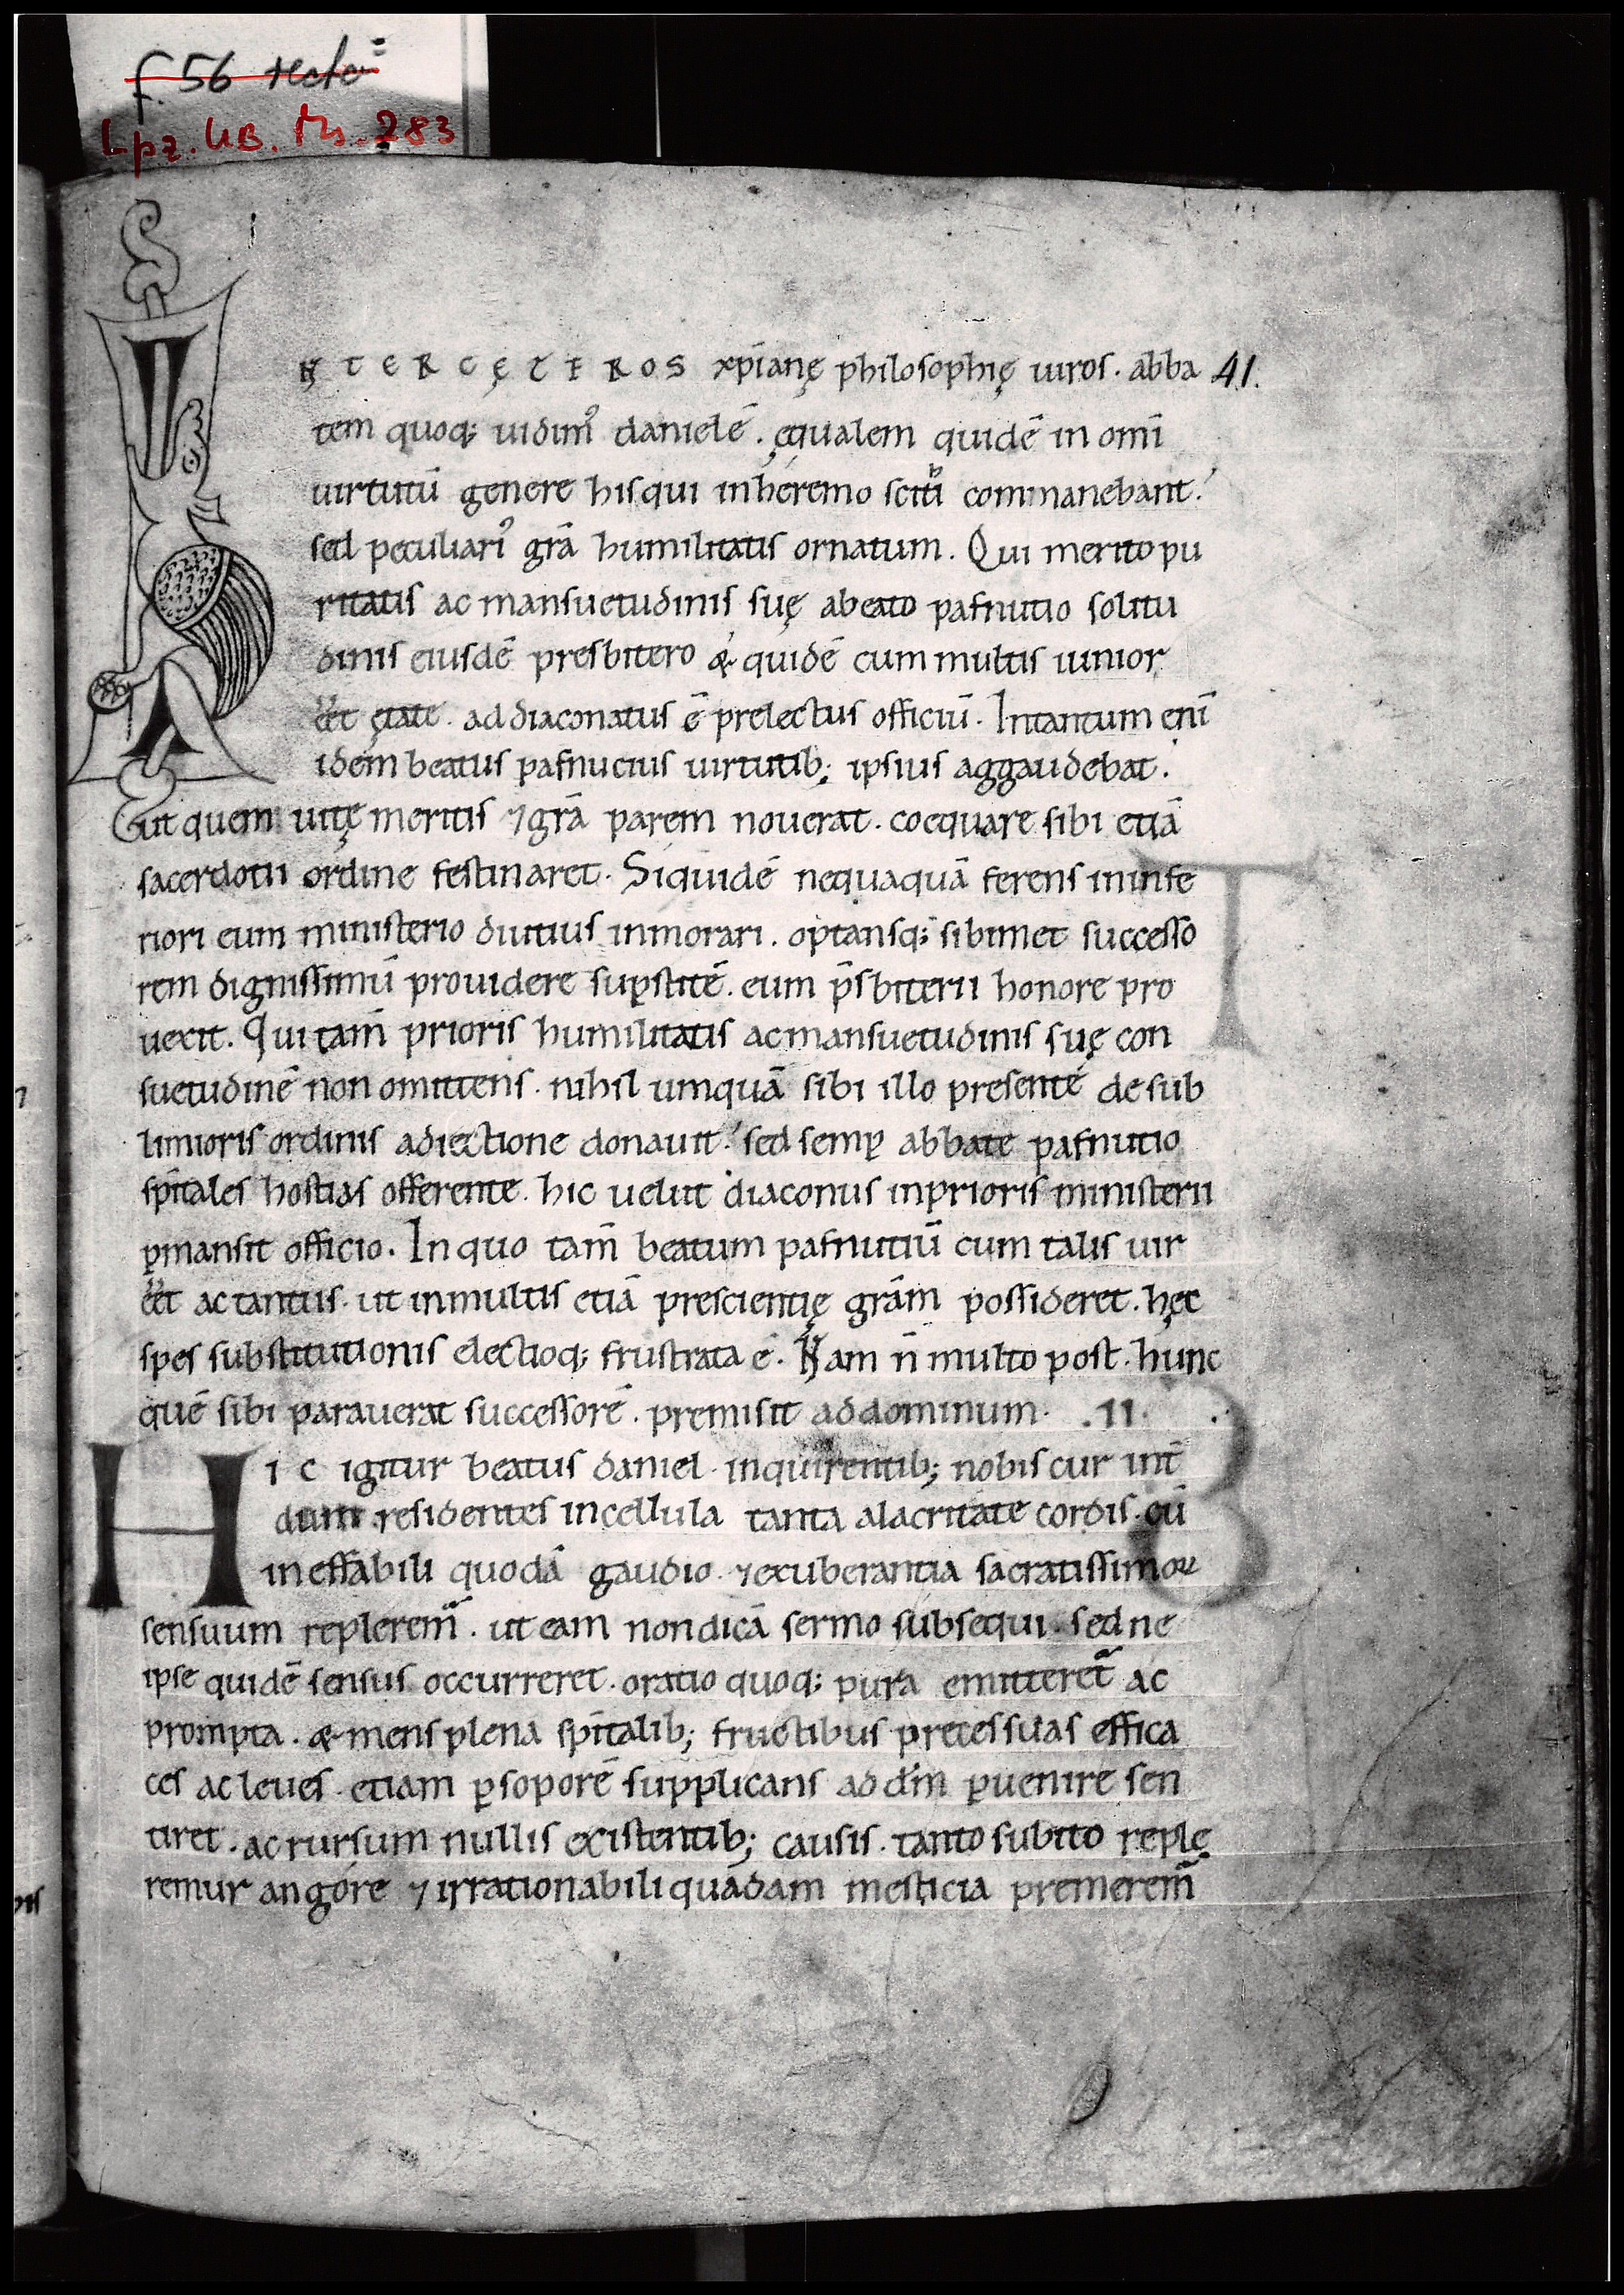 f. 56 recto
Lpz. UB. Ms. 283
INTER CĘTEROS xp̄ianę philosophię uiros. abba 41.
tem quoq; uidim᷒ danielē. ęqualem quidē in om̄i
uirtutū genere his qui in heremo sciti commanebant.
sed peculiari᷒ grā humilitatis ornatum. Qui merito pu
ritatis ac mansuetudinis suę abeato pafnutio solitu
dinis eiusdē presbitero & quidē cum multis iunior
eēt ętate. ad diaconatus ē prelectus officiū. Intantum enī
idem beatus pafnucius uirtutib; ipsius aggaudebat.
ut quem uitę meritis ⁊ grā parem nouerat. coequare sibi etiā
sacerdotii ordine festinaret. Siquidē nequaquā ferens in infe
riori eum ministerio diutius inmorari. optansq; sibimet successo
rem dignissimū prouidere suꝑstitē. eum p̄sbiterii honore pro
uexit. Qui tam̄ prioris humilitatis ac mansuetudinis suę con
suetudinē non omittens. nihil umquā sibi illo presente de sub
limioris ordinis adiectione donauit. sed semꝑ abbate pafnutio
sp̄itales hostias offerente. hic uelut diaconus in prioris ministerii
ꝑmansit officio. In quo tam̄ beatum pafnutiū cum talis uir
eēt ac tantus. ut in multis etiā prescientię grām possideret. hęc
spes substitutionis electioq; frustrata ē. Nam n̄ multo post. hunc
quē sibi parauerat successorē. premisit ad dominum. .II.
HIC igitur beatus daniel. inquirentib; nobis cur int̄
dum residentes in cellula tanta alacritate cordis. cū
ineffabili quodā gaudio. ⁊ exuberantia sacratissimoꝝ
sensuum replerem̄. ut eam non dicā sermo subsequi. sed ne
ipse quidē sensus occurreret. oratio quoq; pura emitteret̄ ac
prompta. & mens plena sp̄italib; fructibus preces suas effica
ces ac leues. etiam ꝑ soporē supplicans ad dm̄ ꝑuenire sen
tiret. ac rursum nullis existentib; causis. tanto subito replę
remur angore ⁊ irrationabili quadam mesticia premerem̄